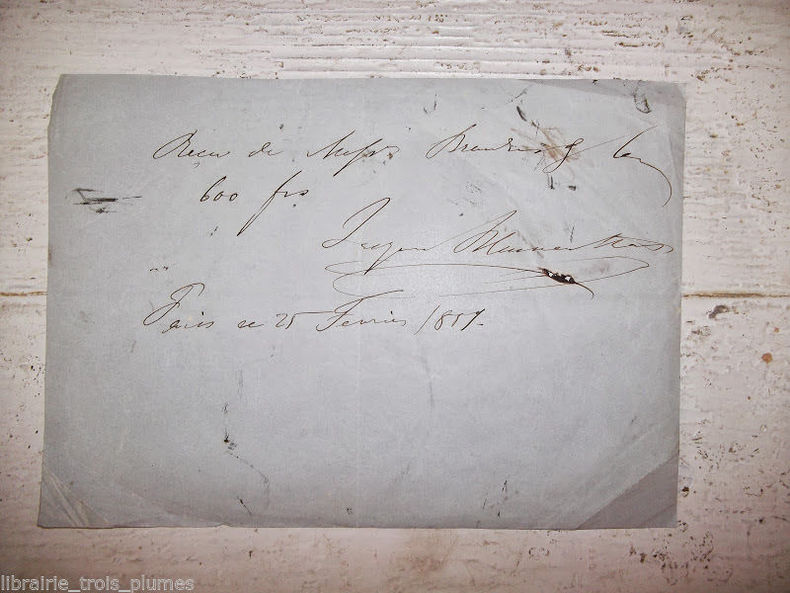 Reçu de Messrs
600 frs
Jacques Blumenthal
Paris le 25 Fevrier 1857.
librairie_trois_plumes